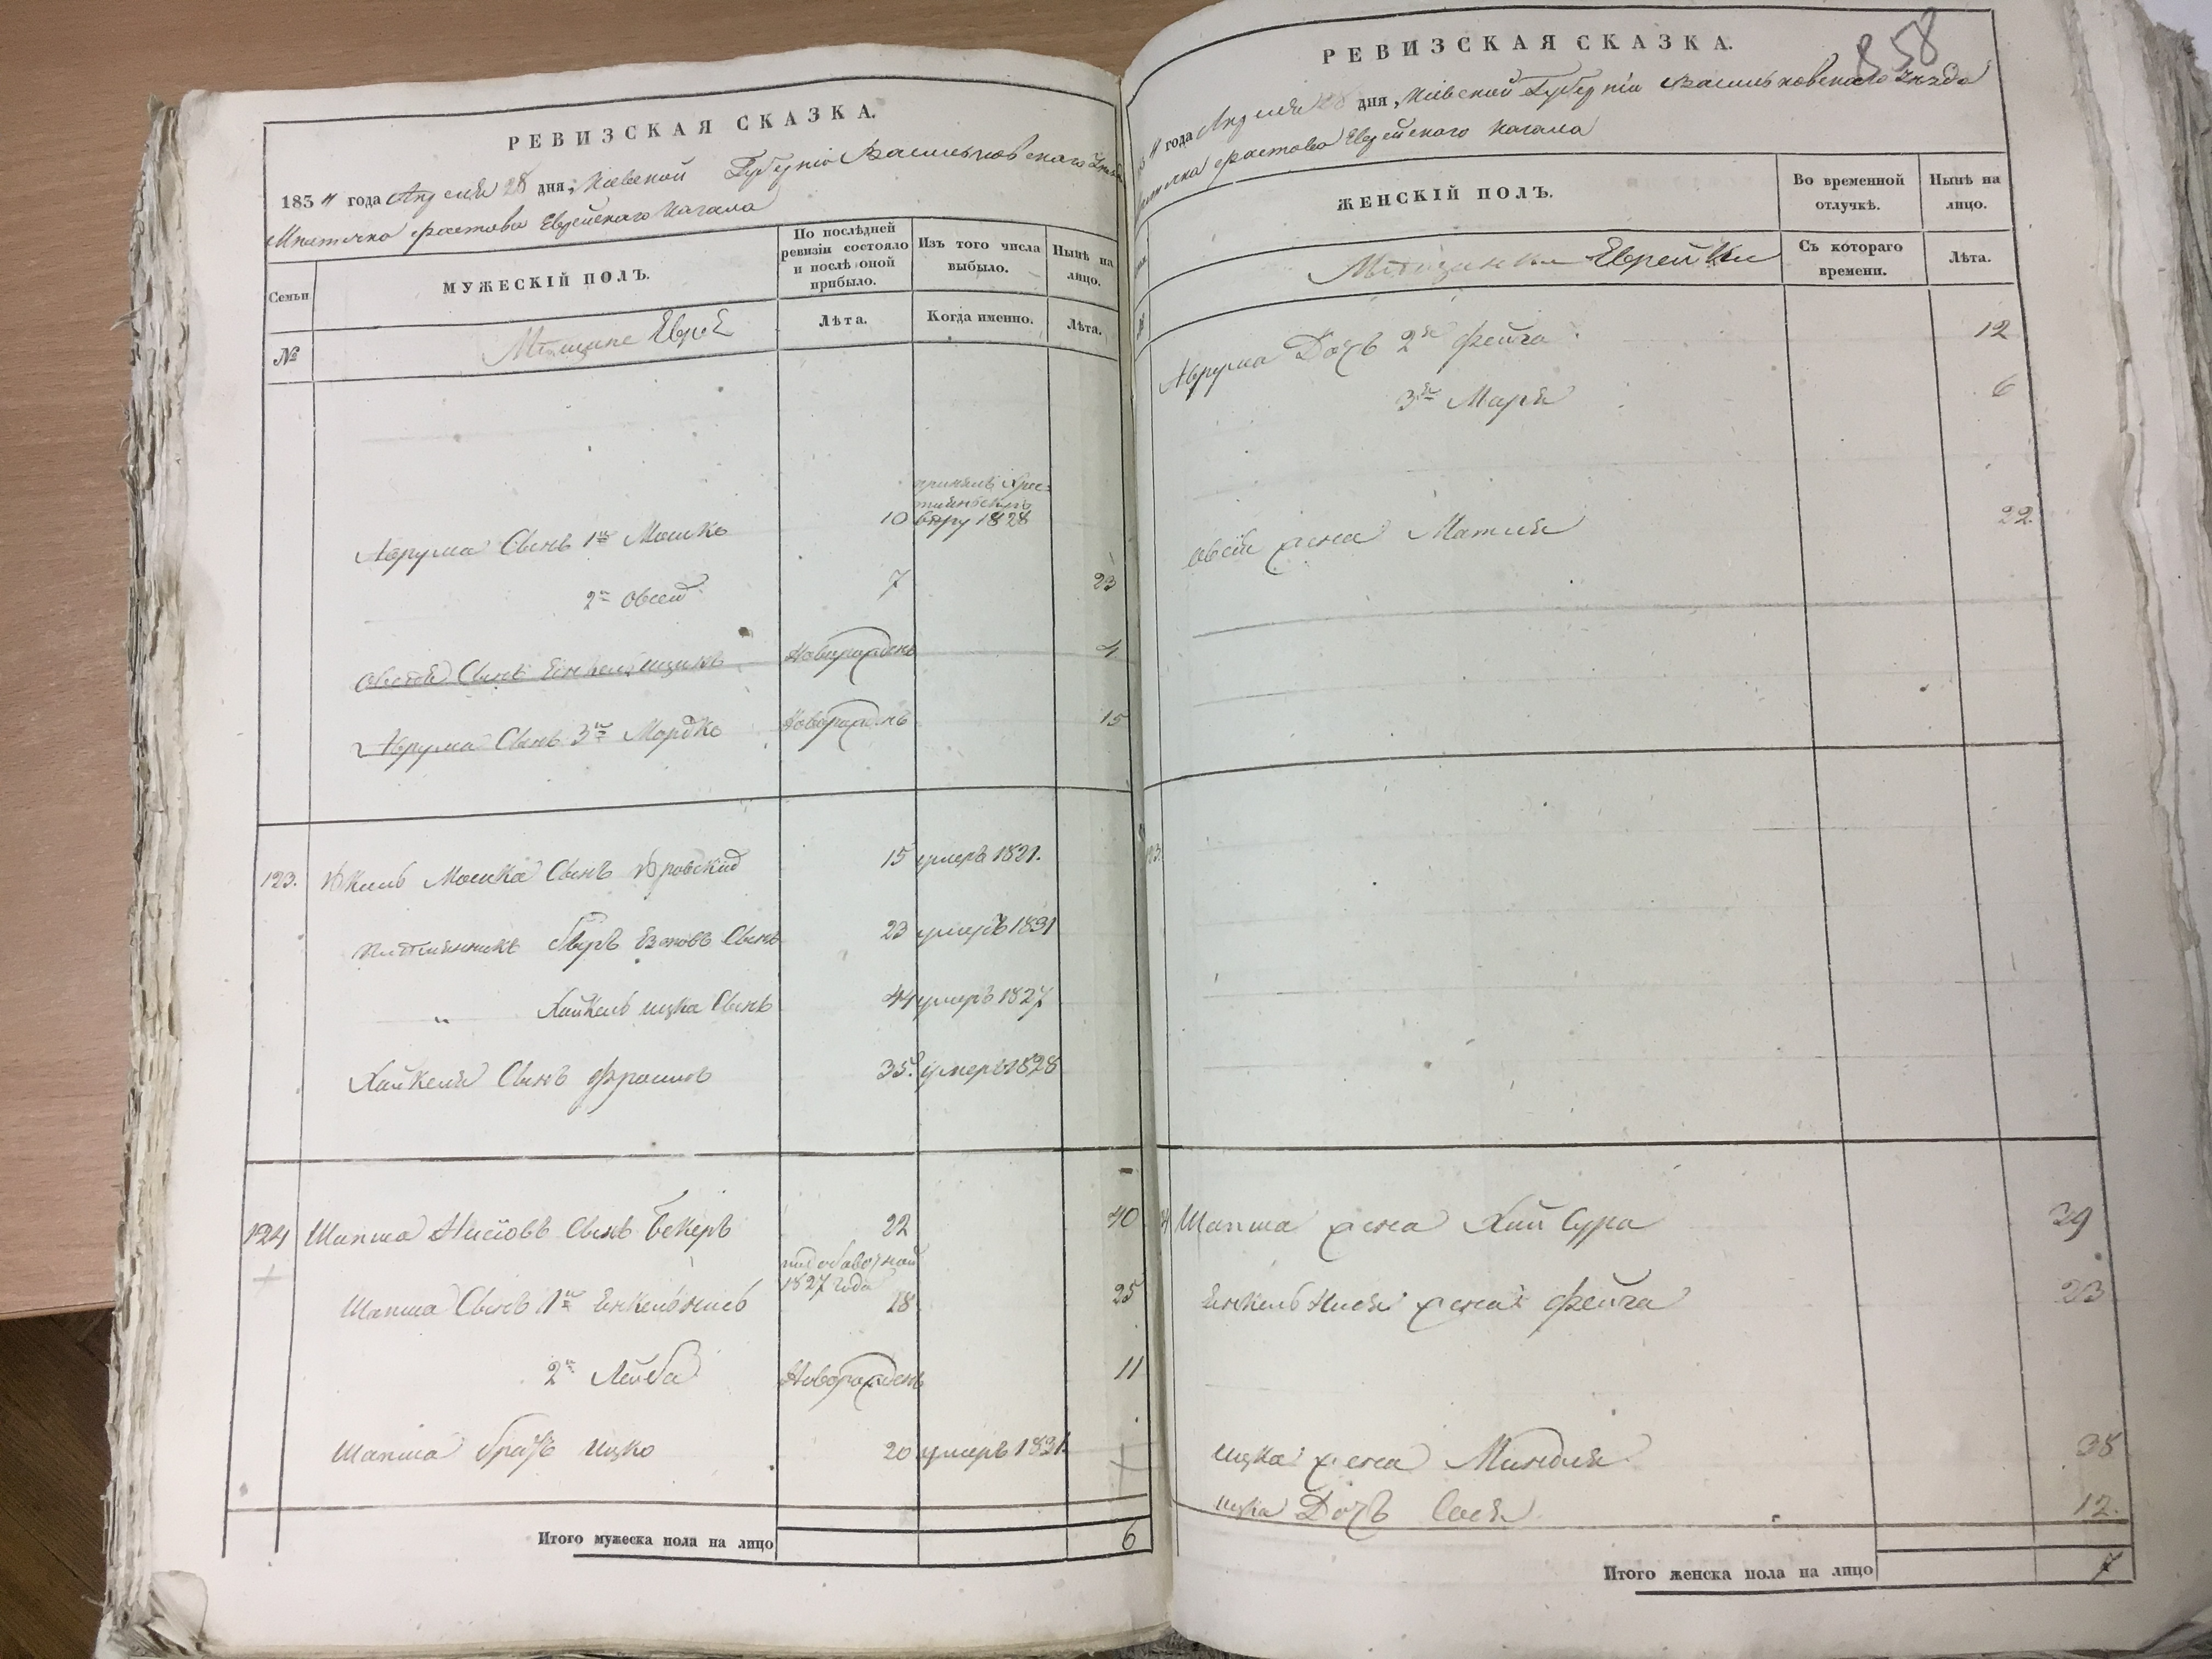 РЕВИЗСКАЯ СКАЗКА.
1834 года Апреля 28 дня, Киевской Губернiи Васильковского
Мѣстечка Фастова Еврейского Кагала
Семьи
МУЖЕСКIЙ ПОЛЪ.
По послѣдней ревизiи состояло и послѣ оной прибыло.
Изъ того числа выбыло.
Нынѣ на лицо.
№
Мѣщане Евреи
Лѣта.
Когда именно.
Лѣта.
принялъ Хрис-
тiянскую
Аврума Сынъ 1й Мошко 10 вѣру 1828
2й Овсей 7 23
Овсея Сынъ Ицикъ Новорожденъ 4
Аврума Сынъ 3й Мордко Новорожденъ 15
123. Мошка Сынъ 15 умеръ 1821.
Племянникъ Сынъ 23 умеръ 1831
" Хайкель Ицка Сынъ 44 умеръ 1827
Хайкеля Сынъ Фроимъ 35. умеръ 1828
124 Шапша Сынъ Бекеръ 22 40
1827 года
Шапша Сынъ 1й Енкель Нись 18 25
2й Лейба Новорожденъ 11
Шапша братъ Ицко 20 умеръ 1831.
Итого мужеска пола на лицо 6
858
РЕВИЗСКАЯ СКАЗКА.
года Апреля 28 дня, Кiевской Губернiи Васильковского уѣзда
Фастова Еврейского Кагала
ЖЕНСКIЙ ПОЛЪ.
Во временной отлучкѣ.
Нынѣ на лицо.
Мѣщанки Еврейки
Съ котораго времени.
Лѣта.
Аврума Дочь 2я Фейга 12
3я Маря 6
Овсея жена 22
Шапша жена Хая Сура 39
Енкель Нися жена Фейга 23
Ицка жена Миндля 38
Ицка Дочь Сося 12.
Итого женска пола на лицо 7